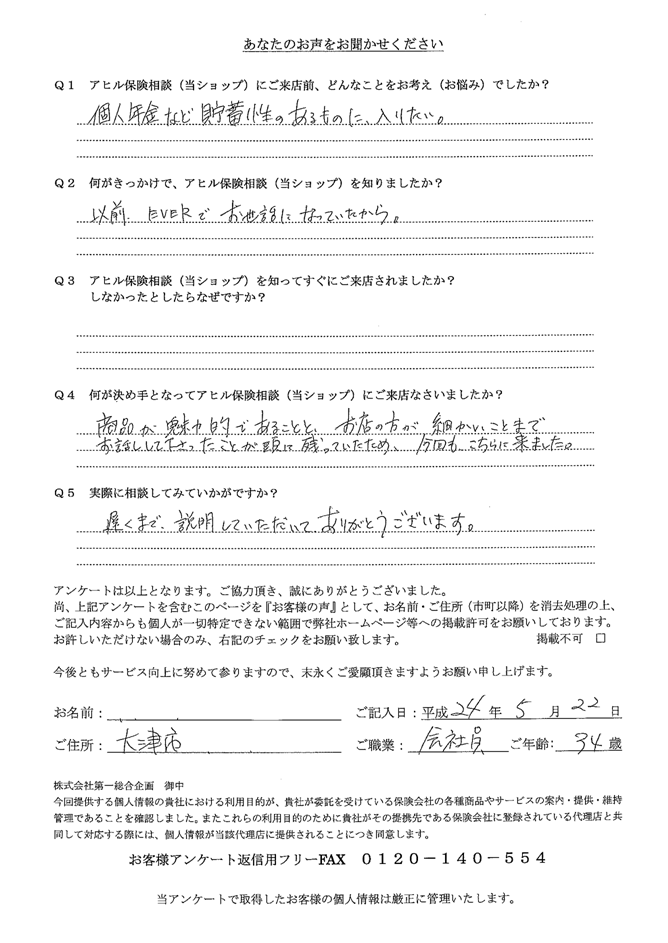 あなたのお声をお聞かせください
Q1 アヒル保険相談(当ショップ)にご来店前、どんなことをお考え(お悩み)でしたか?
個人年金など貯蓄性のあるものに、入りたい。
Q2 何がきっかけで、アヒル保険相談(当ショップ)を知りましたか?
以前、EVERでお世話になっていたから。
Q3 アヒル保険相談(当ショップ)を知ってすぐにご来店されましたか?
しなかったとしたらなぜですか?
Q4 何が決め手となってアヒル保険相談(当ショップ)にご来店なさいましたか?
商品が魅力的であることと、お店の方が細かいことまで
お話しして下さったことが頭に残っていたため、今回も、こちらに来ました。
Q5 実際に相談してみていかがですか?
遅くまで、説明していただいてありがとうございます。
アンケートは以上となります。ご協力頂き、誠にありがとうございました。
尚、上記アンケートを含むこのページを『お客様の声』として、お名前・ご住所(市町以降)を消去処理の上、
ご記入内容からも個人が一切特定できない範囲で弊社ホームページ等への掲載許可をお願いしております。
お許しいただけない場合のみ、右記のチェックをお願い致します。 掲載不可 □
今後ともサービス向上に努めて参りますので、末永くご愛顧頂きますようお願い申し上げます。
お名前: ご記入日:平成24年5月22日
ご住所:大津市 ご職業:会社員 ご年齢:34歳
株式会社第一総合企画 御中
今回提供する個人情報の貴社における利用目的が、貴社が委託を受けている保険会社の各種商品やサービスの案内・提供・維持
管理であることを確認しました。またこれらの利用目的のために貴社がその提携先である保険会社に登録されている代理店と共
同して対応する際には、個人情報が当該代理店に提供されることにつき同意します。
お客様アンケート返信用フリーFAX 0120-140-554
当アンケートで取得したお客様の個人情報は厳正に管理いたします。